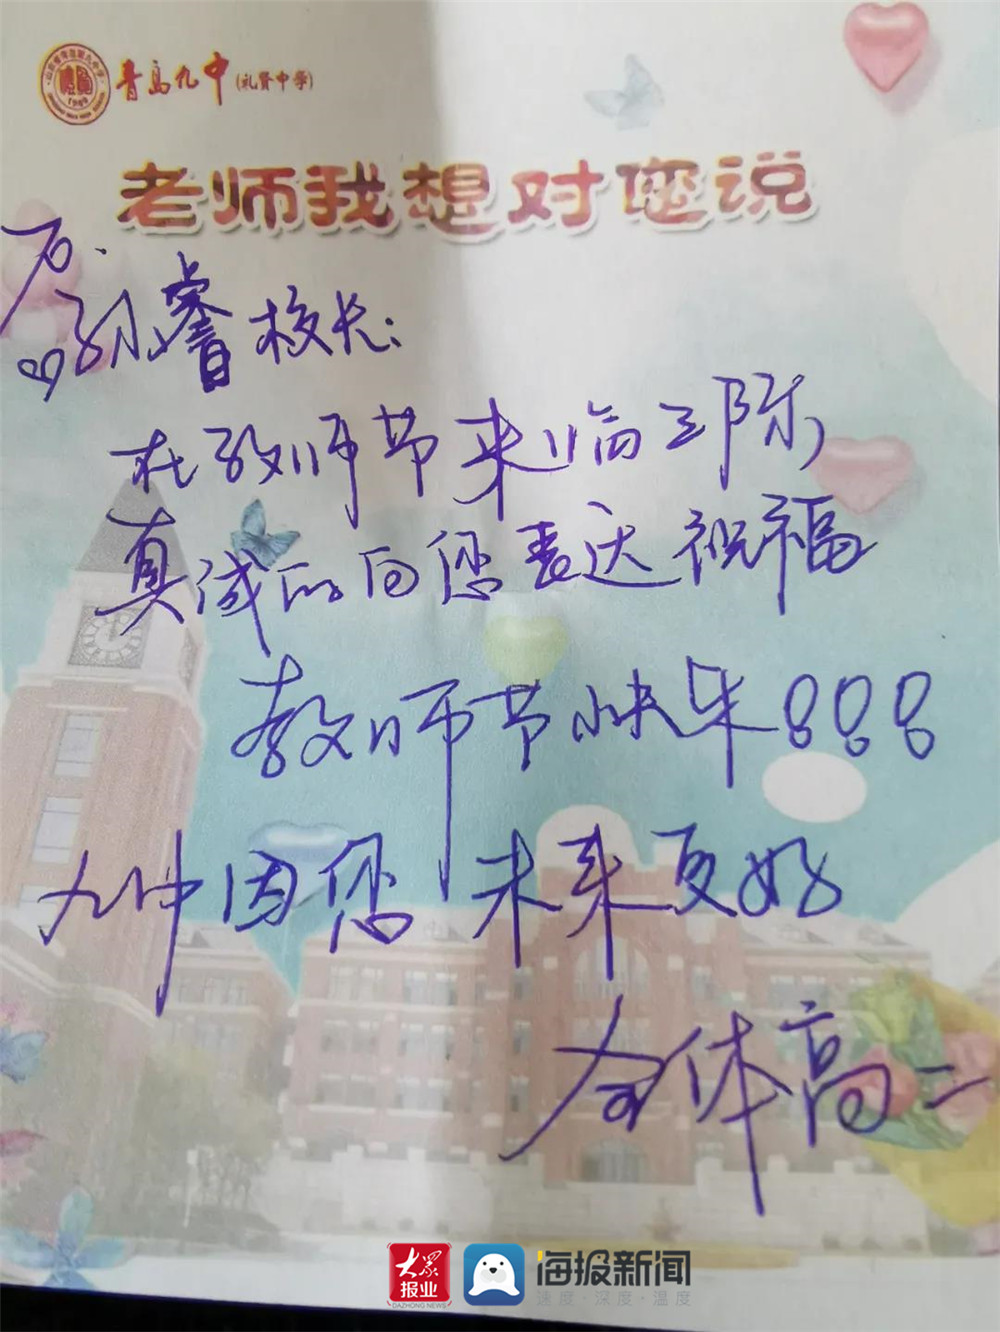 青岛九中(礼贤中学)
老师我想对您说
孙睿校长:
在教师节来临之际,
真诚的向您表达祝福
教师节快乐!!!
九中因您 未来更好
全体高二
大众报业
DAZHONG NEWS
海报新闻
速度·深度·温度